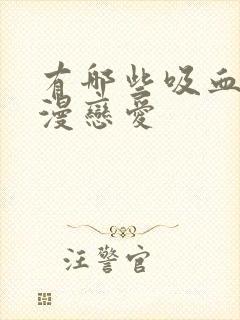 有哪些吸血
漫戀愛
汪警官